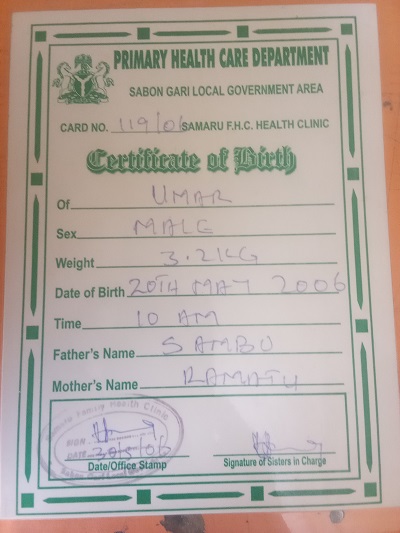 PRIMARY HEALTH CARE DEPARTMENT
SABON GARI LOCAL GOVERNMENT AREA
CARD NO. 119/06 SAMARU F.H.C. HEALTH CLINIC
Certificate of Birth
Of UMAR
Sex MALE
Weight 3.2KG
Date of Birth 20TH MAY 2006
Time 10 AM
Father's Name SAMBO
Mother's Name RAMATU
Family Health Clinic
SIGN
DATE 30/5/06
Sabon Gari
Date/Office Stamp
Signature of Sisters in Charge